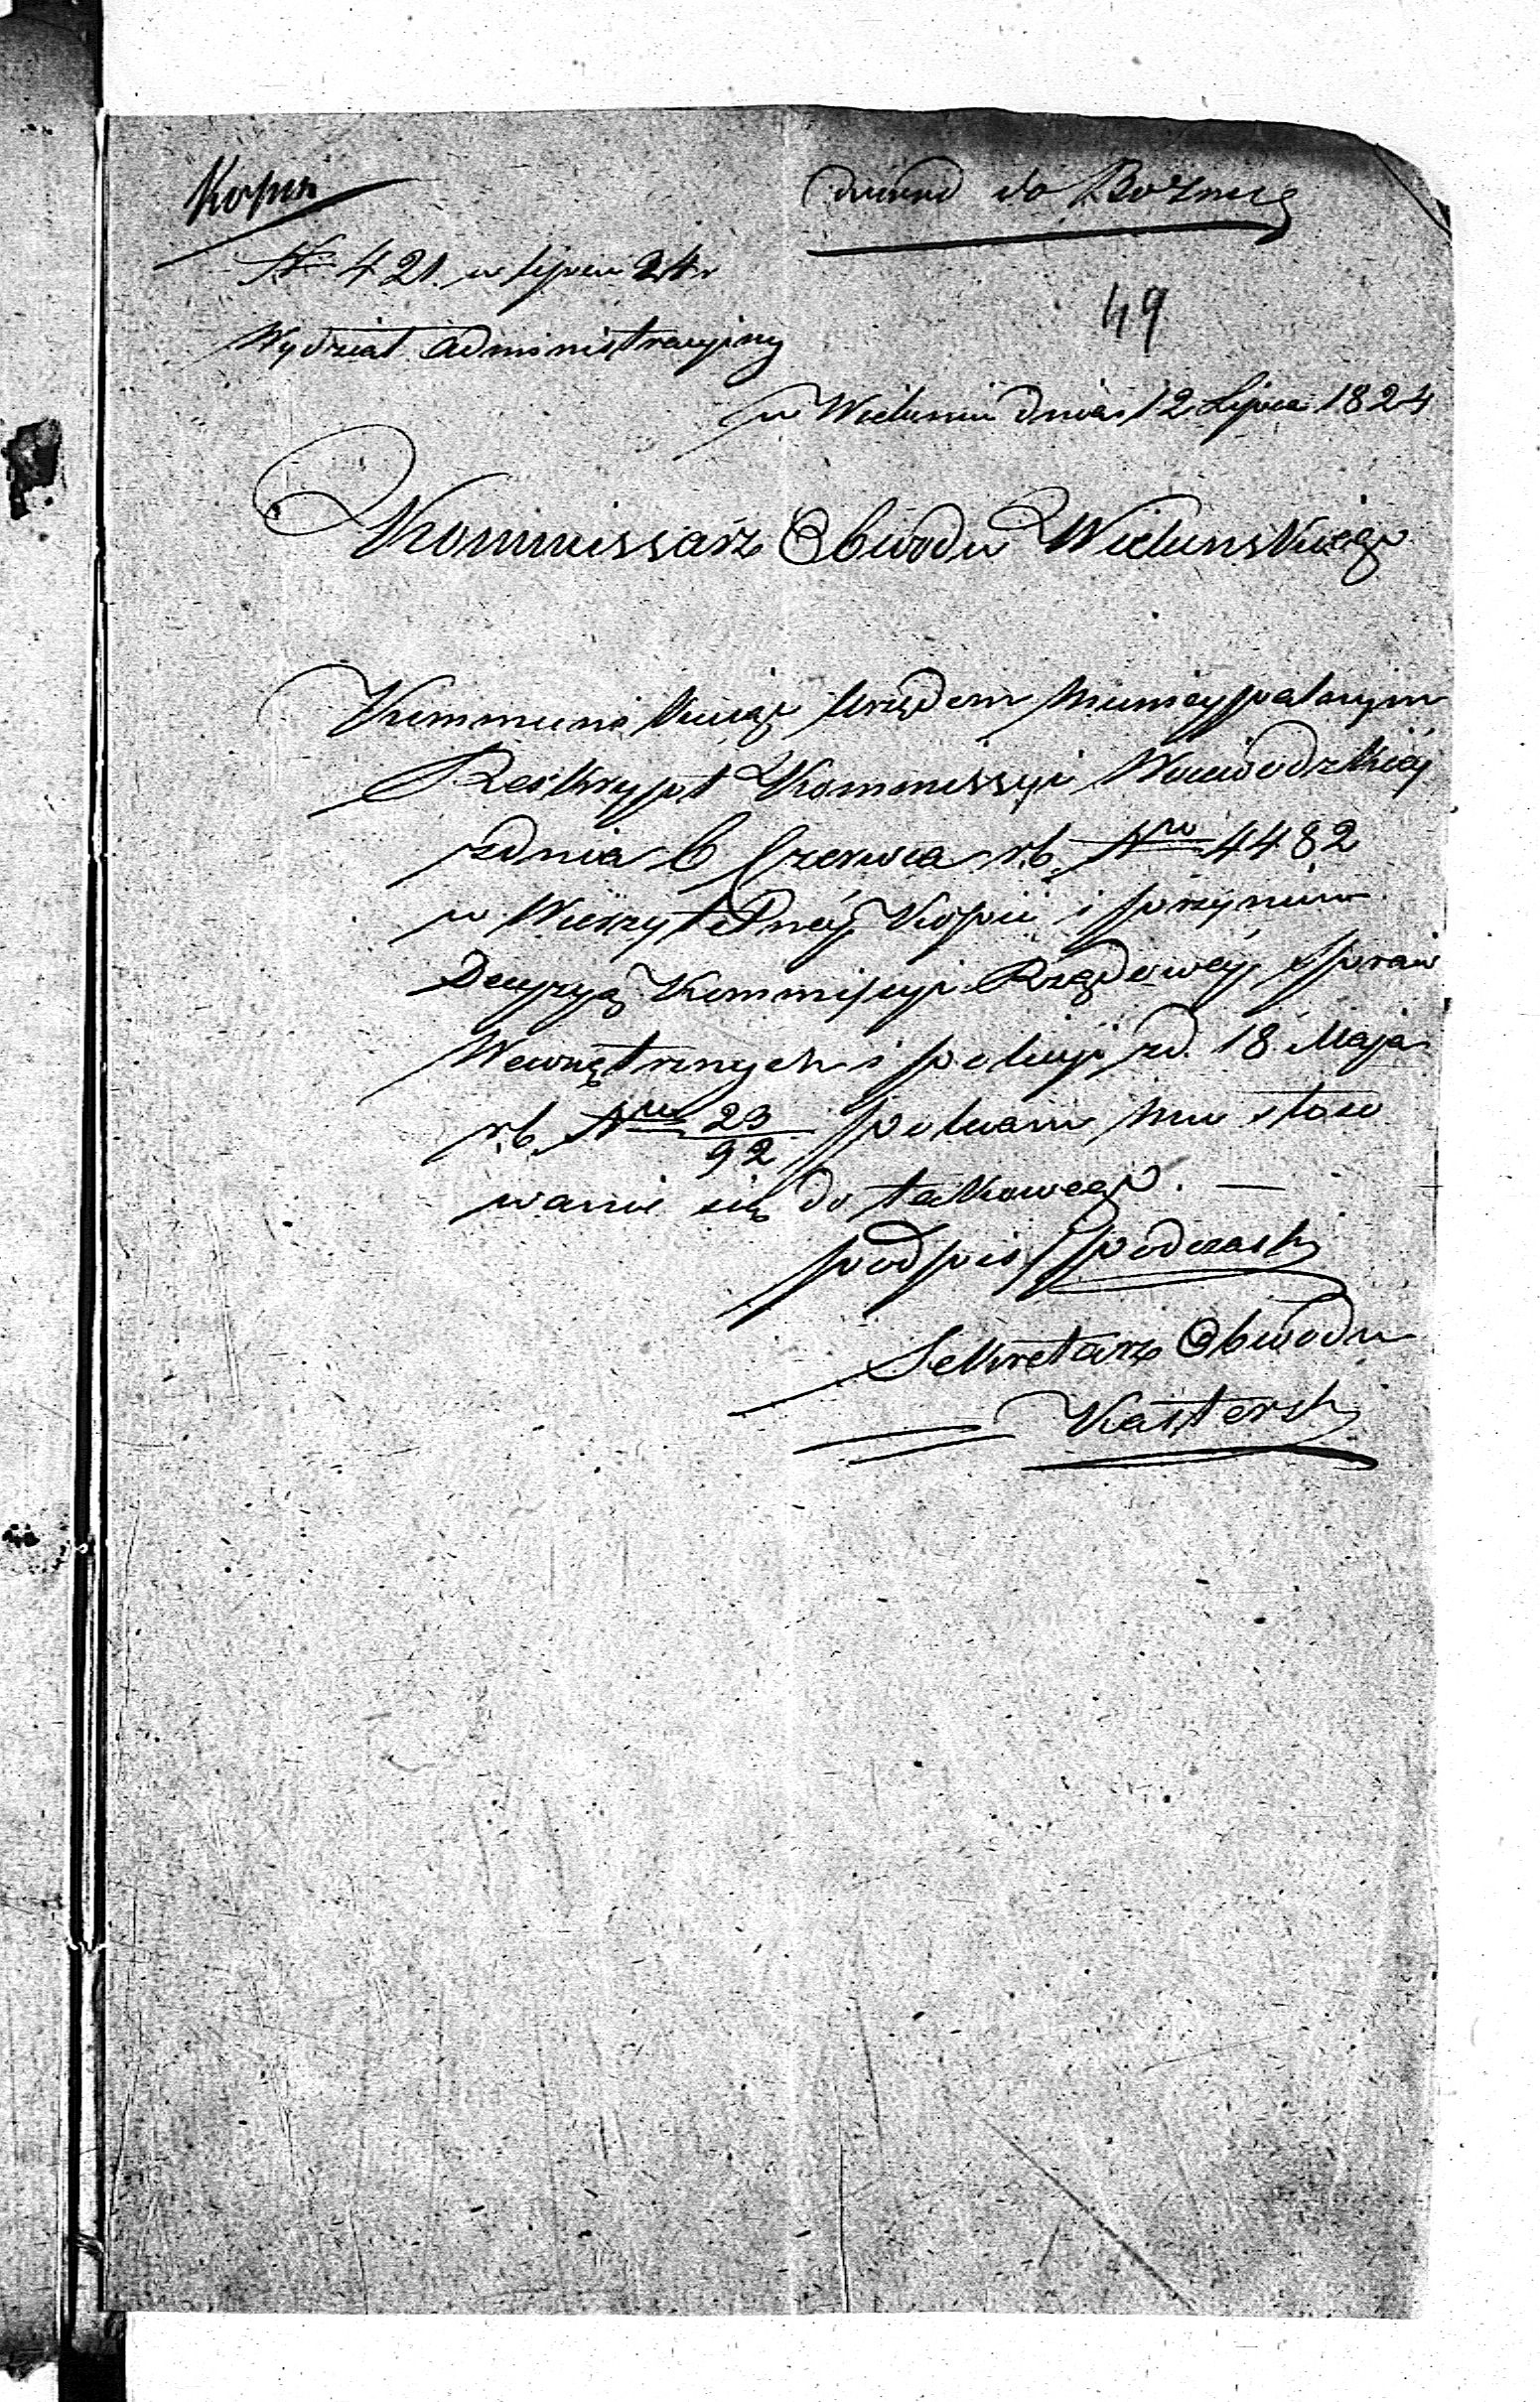 Kopia
do Bożnicy
№ 421. w lipcu 24r
49
Wydział Administracyiny
w Wieluniu dnia 12 Lipca 1824
Kommissarz Obwodu Wieluńskiego
Kommunikuiąc Urzędom Municypalnym
Reskrypt Kommissyi Woiewodzkiey
zdnia 6 Czerwca r.b. Nro 4482
w Wierzytelney Kopii i
Decyzyą Kommissyi Rządowey Spraw
Wewnętrznych i policyi zd. 18 Maja
r.b. Nro 23/92 polecam im stoso
wanie się do takowego. —
podpis/ Podczaski
Sekretarz Obwodu
Kasterski